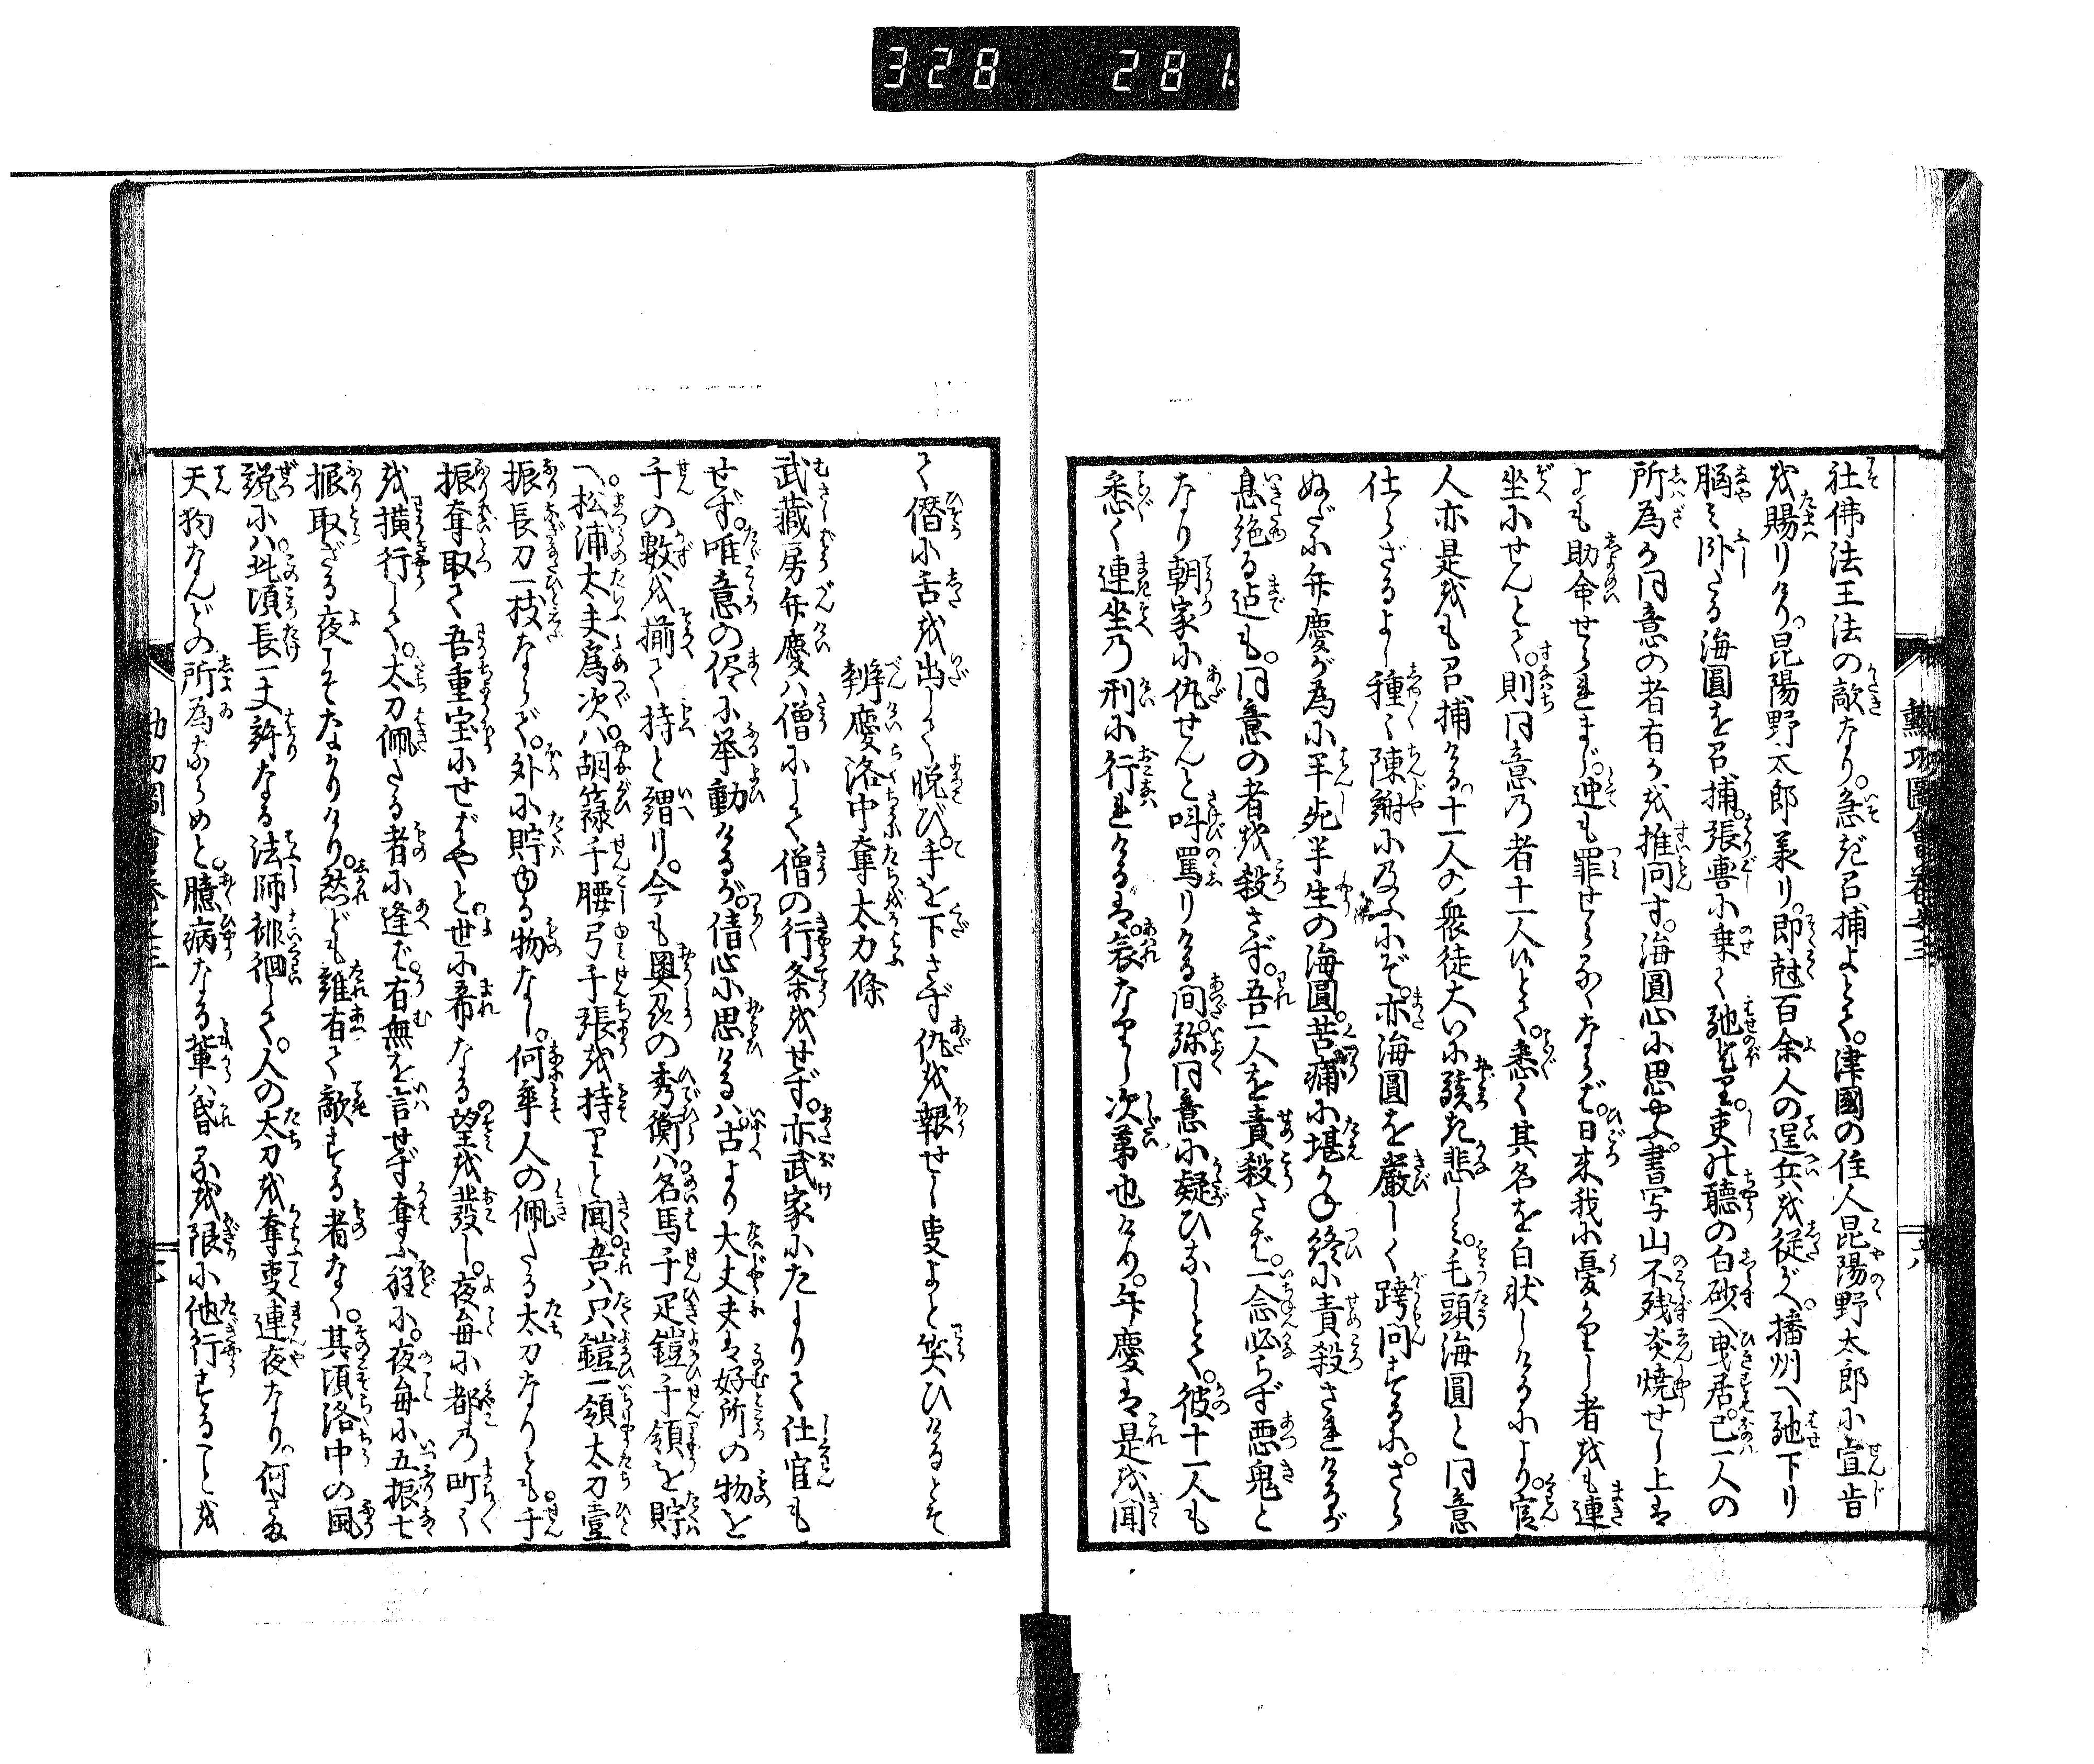 328 281
社佛法王法の敵なり。急ぎ召捕よとて。津國の住人昆陽野太郎に宣旨
を賜りけり。昆陽野太郎承り。即尅百余人の逞兵を従がへ。播州へ馳下り
脳み臥たる海圓を召捕。張輿に乗て馳登り。吏の聴の白砂へ曳居。已一人の
所為か同意の者有かを推問す。海圓心に思やう。書写山不残炎焼せし上は
よも助命せられまじ。迚も罪せらるゝならば。日来我に憂かりし者をも連
坐にせんとて。則同意の者十一人候とて。悉く其名を白状しけるにより。官
人亦是をも召捕ける。十一人の衆徒大いに駭き悲しみ。毛頭海圓と同意
仕らざるよし種々陳謝に及ふにぞ。亦海圓を嚴しく拷問するに。さら
ぬだに弁慶が為に半死半生の海圓。苦痛に堪かね終に責殺されけるが
息絶る迠も。同意の者を殺さず。吾一人を責殺さば。一念必らず悪鬼と
なり朝家に仇せんと叫罵りける間。弥同意に疑ひなしとて。彼十一人も
悉く連坐の刑に行れけるは。哀なりし次第也けり。弁慶は是を聞
て僭に舌を出して悦び。手を下さず仇を報せし事よと笑ひけるとぞ
辨慶洛中奪太刀條
武藏房弁慶ハ僧にして僧の行条をせず。亦武家にたよりて仕官も
せず。唯意の侭に挙動けるが。倩心に思けるハ。古より大丈夫は好所の物を
千の數を揃て持と謂り。今も奥刕の秀衡ハ名馬千疋鎧千領を貯
へ。松浦太夫爲次ハ胡簶千腰弓千張を持りと聞。吾ハ只鎧一領太刀壹
振長刀一枝ならで。外に貯ゆる物なし。何卒人の佩たる太刀なりとも。千
振奪取て吾重宝にせばやと。世に希なる望を發し。夜毎に都の町々
を横行して。太刀佩たる者に逢ば。有無を言せず奪ふ程に。夜毎に五振七
振取ざる夜こそなかりけり。然ども誰有て敵する者なく。其頃洛中の風
説にハ。此頃長一丈許なる法師徘徊して。人の太刀を奪事連夜なり。何さま
天狗なんどの所為ならめと。臆病なる輩ハ昏るを限に他行することを